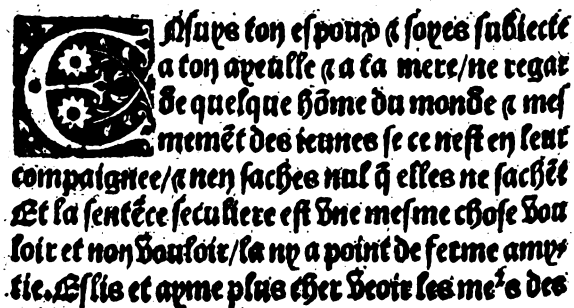 ENſuys ton eſpoux ⁊ ſoyes ſubiecte
a ton ayeulle ⁊ a ta mere/ne regar
de quelque hõme du monde ⁊ meſ
memẽt des ieunes ſe ce neſt en leur
compaignee/⁊ nen ſaches nul q̃ elles ne ſachẽt
Et la ſentẽce ſeculiere eſt vne meſme choſe vou
loir et non vouloir/la ny a point de ferme amy⸗
tie.Eſlis et ayme plus cher veoir les meˀs des